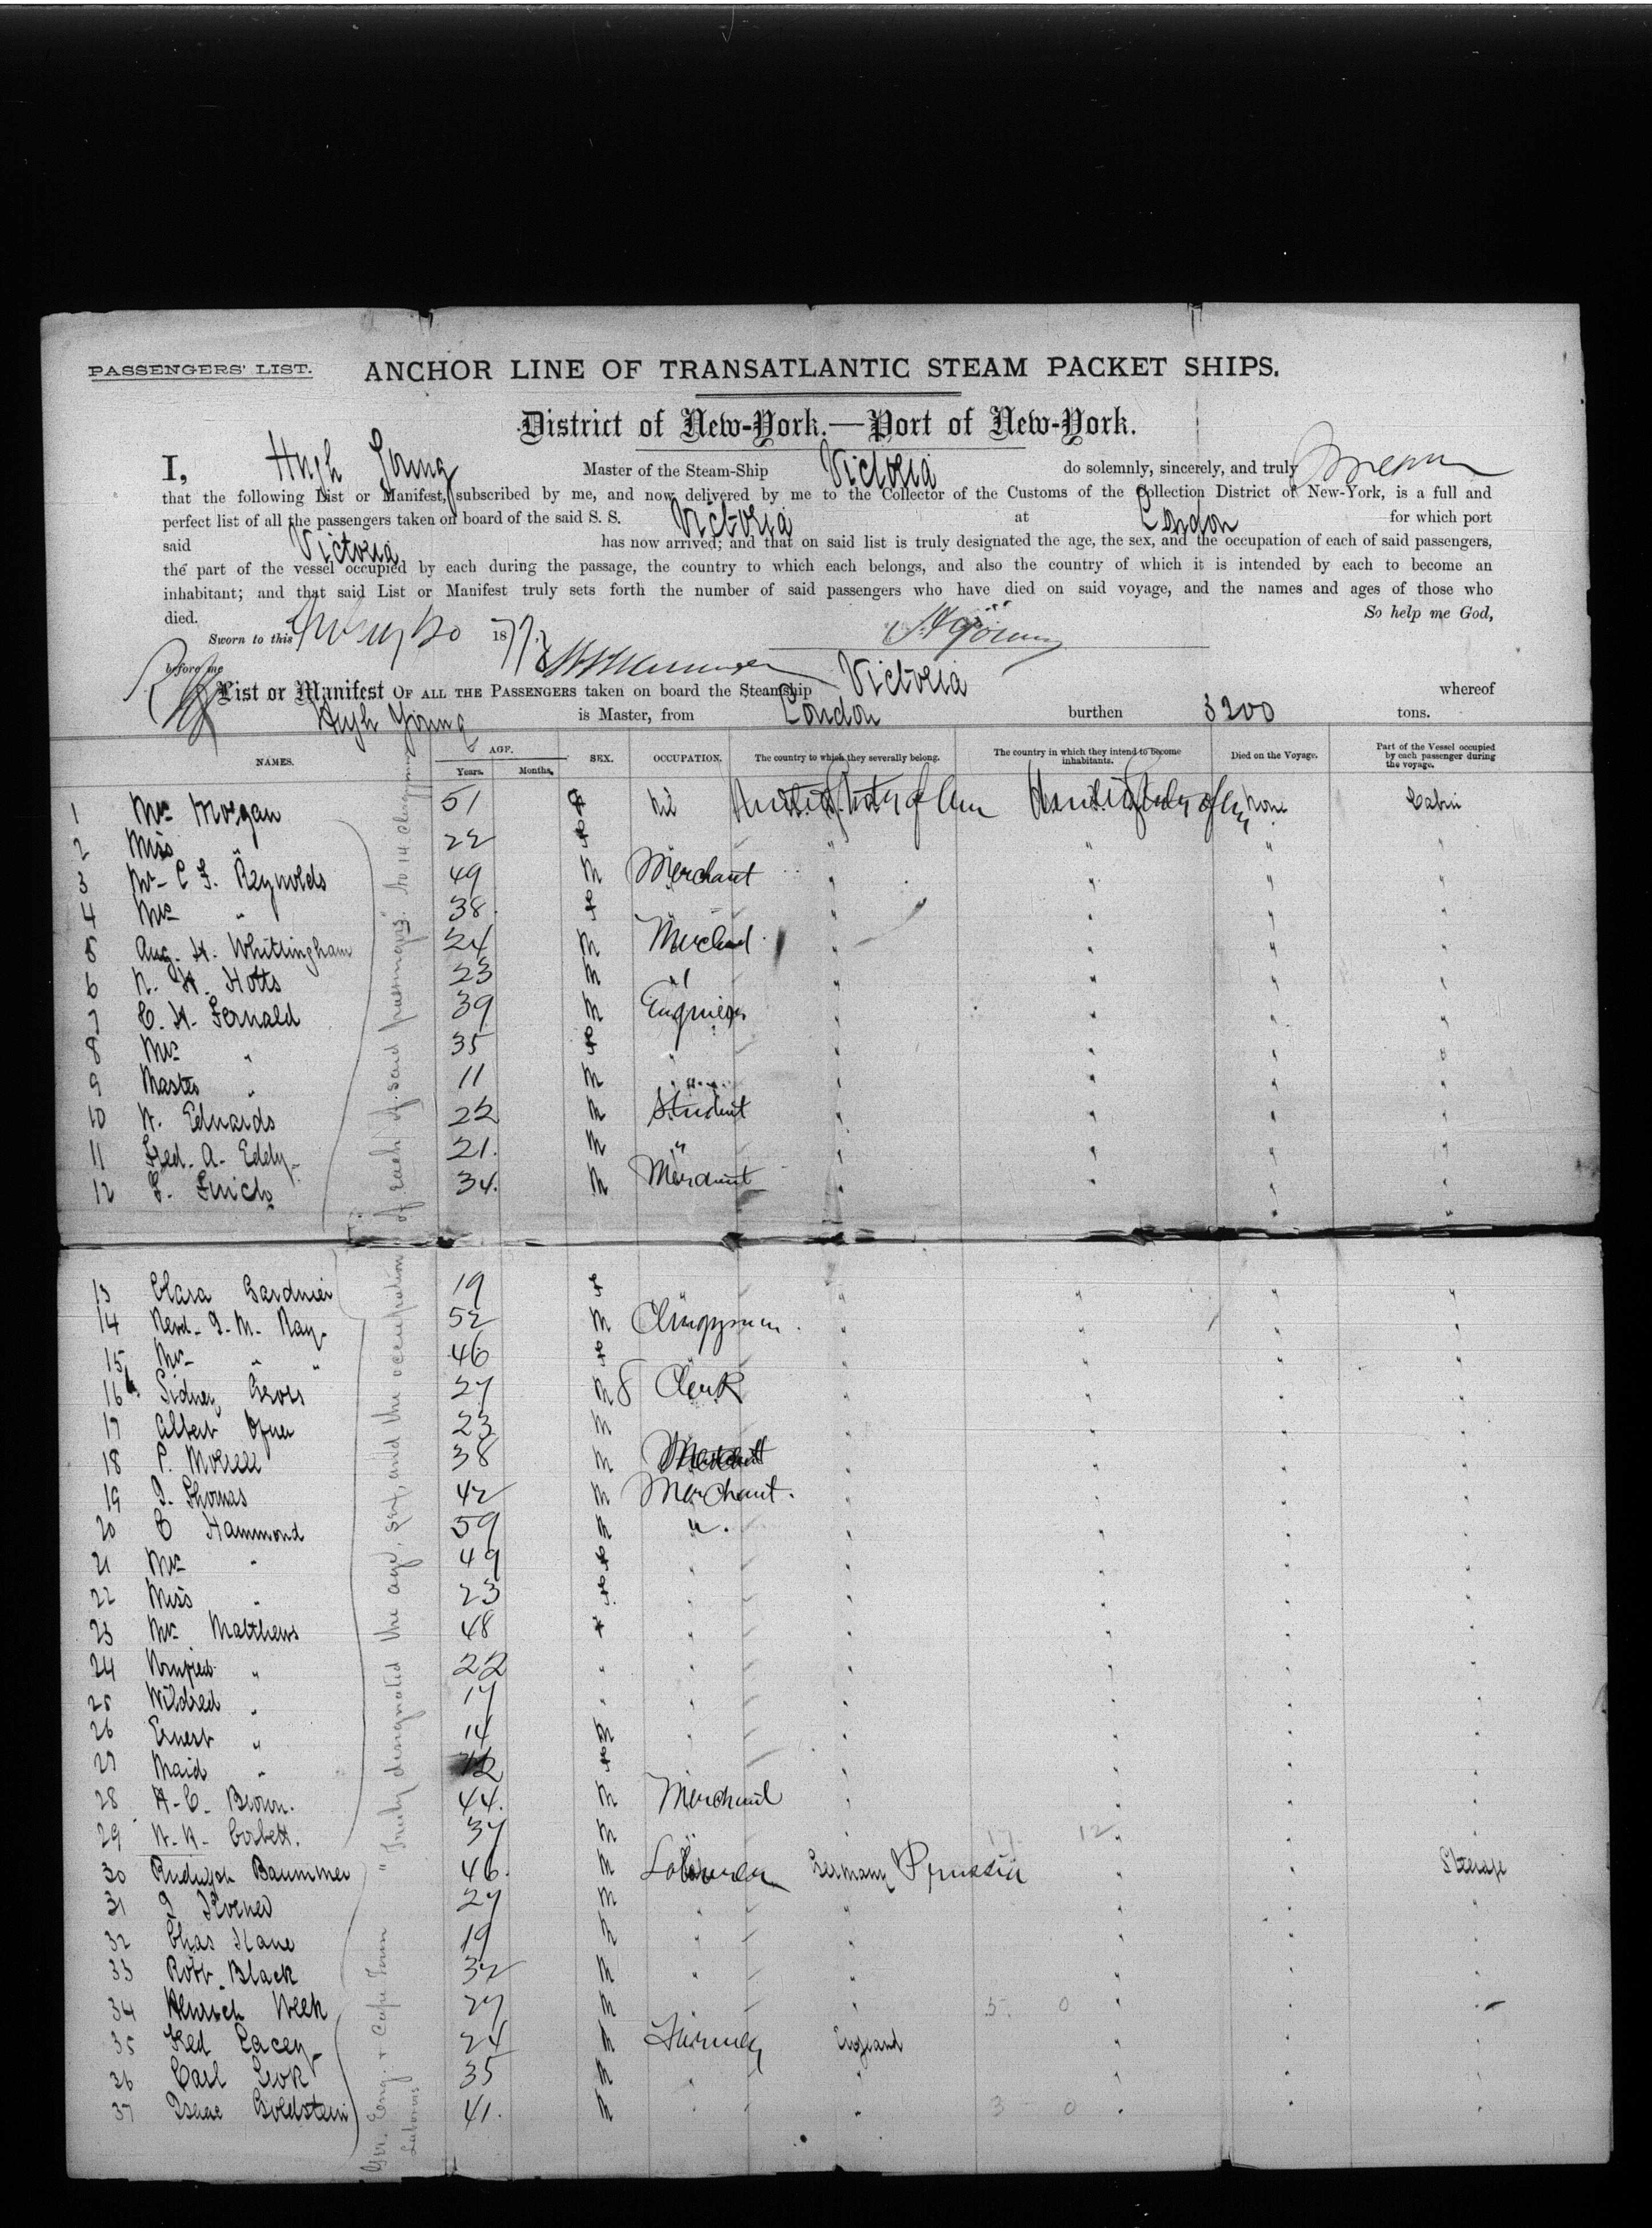 PASSENGERS' LIST. ANCHOR LINE OF TRANSATLANTIC STEAM PACKET SHIPS.
District of New-York.—Port of New-York.
I, Hugh Young Master of the Steam-Ship Victoria do solemnly, sincerely, and truly
that the following List or Manifest, subscribed by me, and now delivered by me to the Collector of the Customs of the Collection District of New-York, is a full and
perfect list of all the passengers taken on board of the said S. S. Victoria at London for which port
said Victoria has now arrived; and that on said list is truly designated the age, the sex, and the occupation of each of said passengers,
the part of the vessel occupied by each during the passage, the country to which each belongs, and also the country of which it is intended by each to become an
inhabitant; and that said List or Manifest truly sets forth the number of said passengers who have died on said voyage, and the names and ages of those who
died. So help me God,
Sworn to this 187 HYoung
before me
List or Manifest OF ALL THE PASSENGERS taken on board the Steamship Victoria whereof
Hugh Young is Master, from London burthen 3200 tons.
NAMES. AGE. Years. Months. SEX. OCCUPATION. The country to which they severally belong. The country in which they intend to become inhabitants. Died on the Voyage. Part of the Vessel occupied by each passenger during the voyage.
1 Mrs Morgan 51 f Nil United States of Am United States of Am None Cabin
2 Miss " 22 f " " " "
3 Mr C F. Reynolds 49 M Merchant " " " "
4 Mrs " 38 f " " " "
5 Aug. H. Whittingham 24 M Merchant " " " "
6 N. H. Hotts 23 M " " " " "
7 C. H. Fernald 39 M Engineer " " " "
8 Mrs " 35 f " " " " "
9 Master " 11 M " " " " "
10 W. Edwards 22 M Student " " " "
11 Fred. A. Eddy 21. M " " " " "
12 34. M Merchant " " " "
13 Clara Gardner 19 f " " " "
14 Revd. J. M. Ray 52 M Clergyman " " " "
15 Mrs " " 46 f " " " "
16 Sidney 27 M Clerk " " " "
17 Albert 23 M " " " "
18 P. 38 M " " " "
19 J. Thomas 42 M Merchant. " " " "
20 C Hammond 59 M " " " " "
21 Mrs " 49 f " " " " "
22 Miss " 23 f " " " " "
23 Mrs Matthews 48 f " " " " "
24 " 22 " " " " " "
25 Mildred " 17 " " " " " "
26 Ernest " 14 M " " " " "
27 Maid " f " " " "
28 H. C. Brown. 44. M Merchant " " " "
29 W. R. Corbett. 37 M " " " " " 17. 12
30 Rudolph Baummer 46. M Labourer Germany Prussia " " Steerage
31 J 27 M " " " " "
32 Chas Kane 19 M " " " " "
33 Robt. Black 32 M " " " " "
34 Heinrich Week 27 M " " 5. 0 " " "
35 Fred Lacey 24 M Farmer England " " "
36 Carl 35 M " " " " "
37 Isaac Goldstein 41. M " " 3 0 " " "
"truly designated the age, sex, and the occupation of each of said passengers." No 14 Clergyman